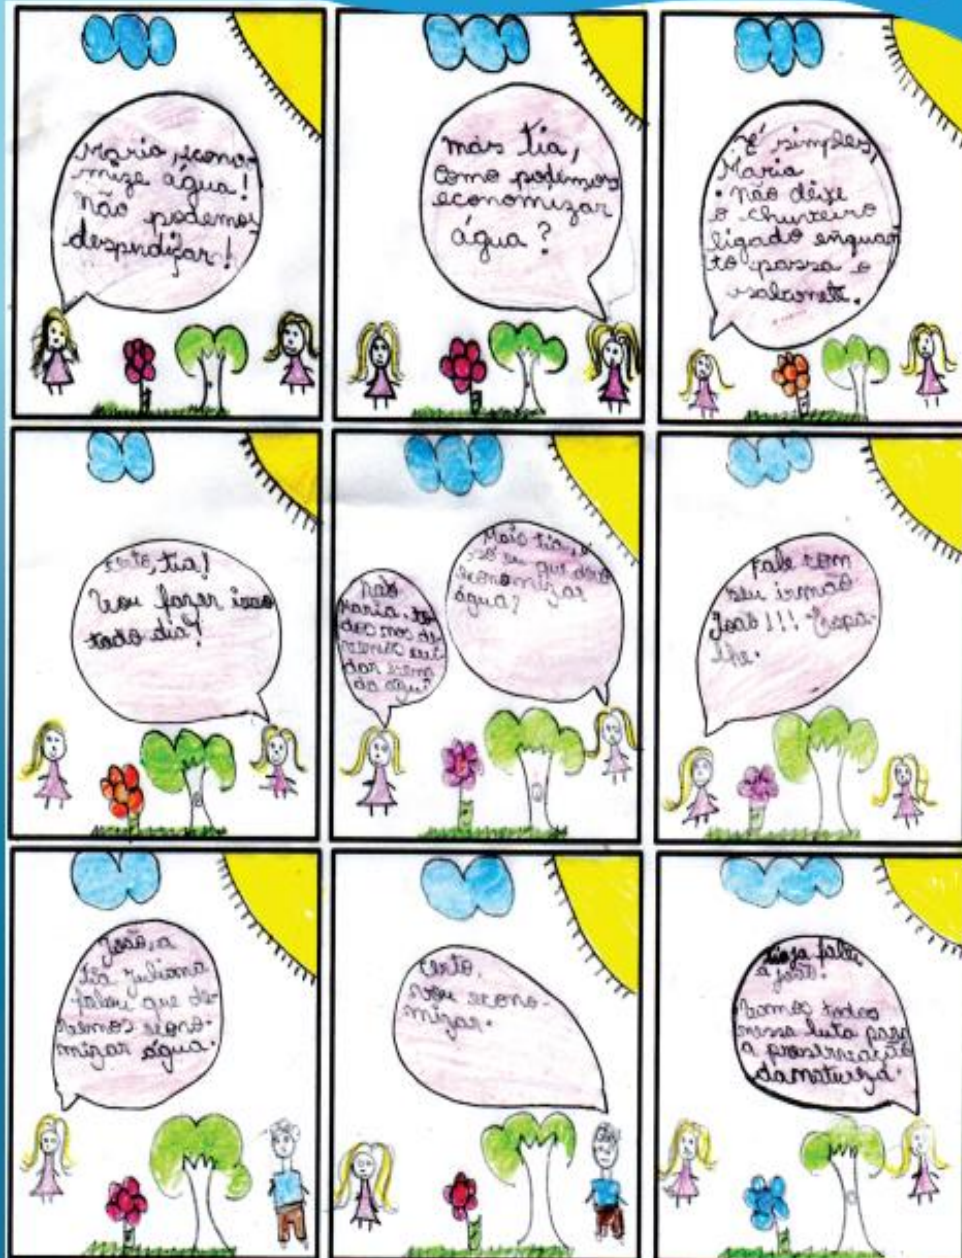 Maria, econo-
mize água!
Não podemos
desperdiçar!
mas tia,
como podemos
economizar
água?
É simples,
Maria
. não deixe
o chuveiro
ligado enquan
to passa o
sabonete.
Certo, tia!
Vou fazer isso
todo dia!
Não
Maria, to
dos nos de-
vemos cui
dar
da água
Mais tia, é
só eu que devo
economizar
água?
Fale com
seu irmão
João!!! Espa-
lhe.
João, a
tia Juliana
falou que de-
vemos econo-
mizar água.
Certo,
vou econo-
mizar.
falei
a João.
Vamos todos
nessa luta para
a preservação
da natureza.